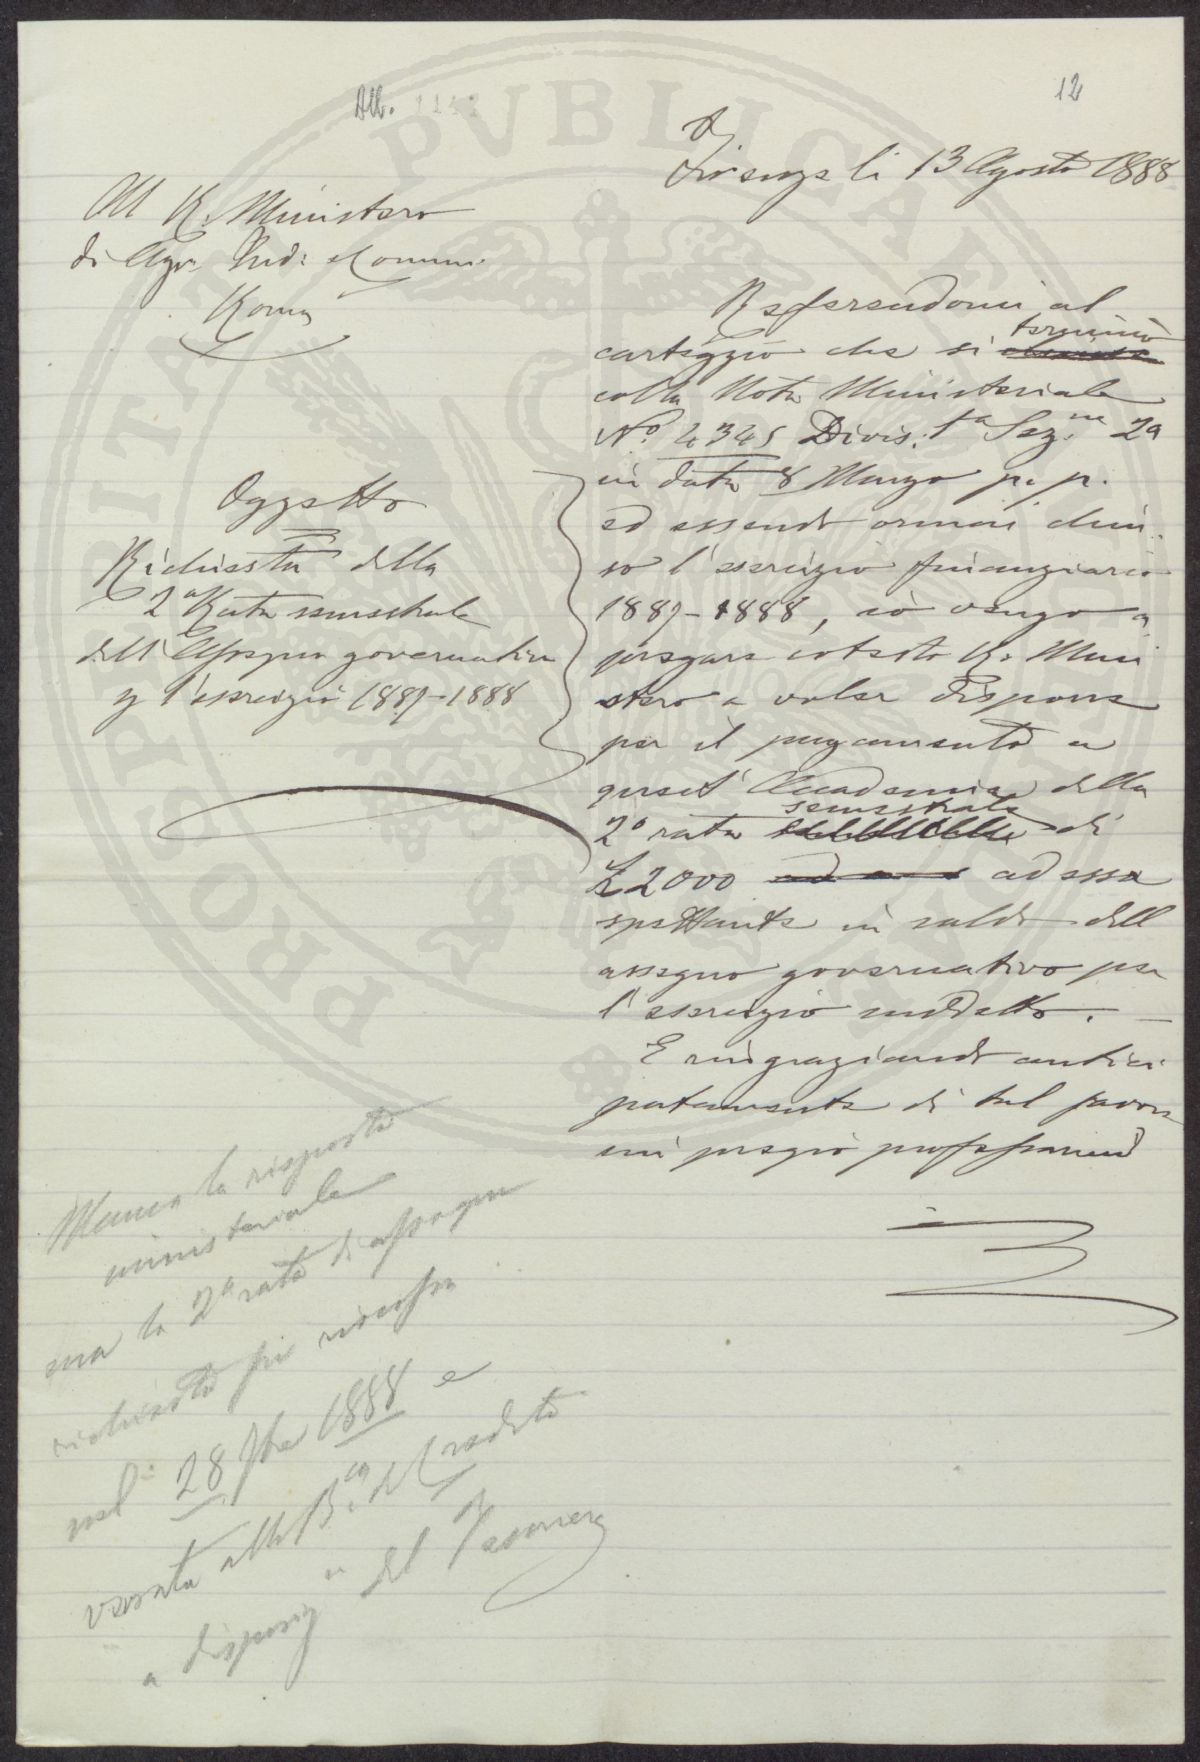 All.
12
Firenze li 13 Agosto 1888
Al R. Ministero
di Agr. Ind: e Comm:
Roma
Oggetto
Richiesta della
2ª Rata semestrale
dell'Assegno governativo
p l'esercizio 1887-1888
Referendomi al
carteggio che si terminò
colla Nota Ministeriale
Nº 4345 Divis: 1ª Sez.ne 2ª
in data 8 Marzo p. p.
ed essendo ormai chiu
so l'esercizio finanziario
1887-1888, io vengo a
pregare cotesto R. Mini
stero a voler disporre
per il pagamento a
quest'Accademia della
2ª rata semestrale di
£ 2000 ad essa
spettante in saldo dell
assegno governativo per
l'esercizio suddetto. —
E ringraziando antici
patamente di tal favore
mi pregio professarmi
Manca la risposta
ministeriale
ma la 2ª rata di assegno
richiesta fu riscossa
nel 28 7bre 1888 e
versata alla B.ca del Credito
a disposiz. del Tesoriere
PROSPERITATI PVBLICAE